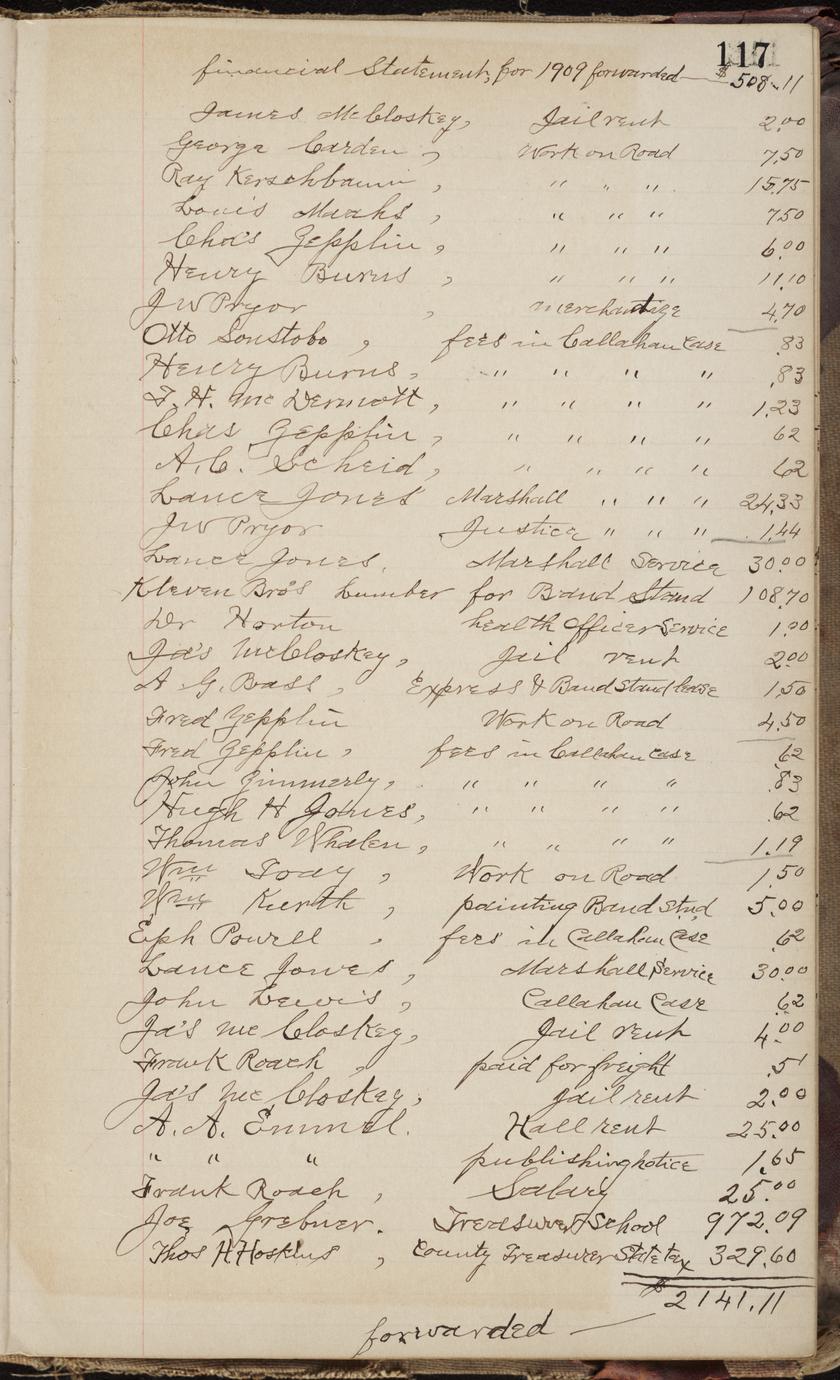 117
financial Statement, for 1909 forwarded — $508.11
James McCloskey, Jail rent 2.00
George Carden, Work on Road 7.50
Ray Kerschbaum, " " " 15.75
Louis Marks, " " " 7.50
Cha's Zepplin, " " " 6.00
Henry Burns, " " " 11.10
J W Pryor, merchantize 4.70
Otto Sonstobo, fees in Callahan Case .83
Henry Burns, " " " " .83
F. H. McDermott, " " " " 1.23
Chas Zepplin, " " " " 62
A. C. Scheid, " " " " 62
Lance Jones Marshall " " " 24.33
J W Pryor Justice " " " 1.44
Lance Jones. Marshall Service 30.00
Kleven Bro's Lumber for Band Stand 108.70
Dr Horton health Officer Service 1.00
Ja's McCloskey, Jail rent 2.00
A. G. Bass, Express & Band Stand lease 1.50
Fred Zepplin Work on Road 4.50
Fred Zepplin, fees in Callahan Case .62
John Zimmerly, " " " " .83
Hugh H Jones, " " " " .62
Thomas Whalen, " " " " 1.19
Wm Toay, Work on Road 1.50
Wm Kurth, painting Band Stnd 5.00
Eph Powell, fees in Callahan Case .62
Lance Jones, Marshall Service 30.00
John Lewis, Callahan Case .62
Ja's McCloskey, Jail rent 4.00
Frank Roach, paid for freight .51
Ja's McCloskey, Jail rent 2.00
A. A. Emmel. Hall rent 25.00
" " " publishing notice 1.65
Frank Roach, Salary 25.00
Joe Grebner. Treasurer School 972.09
Thos H Hoskins, County Treasurer State tax 329.60
$2141.11
forwarded —